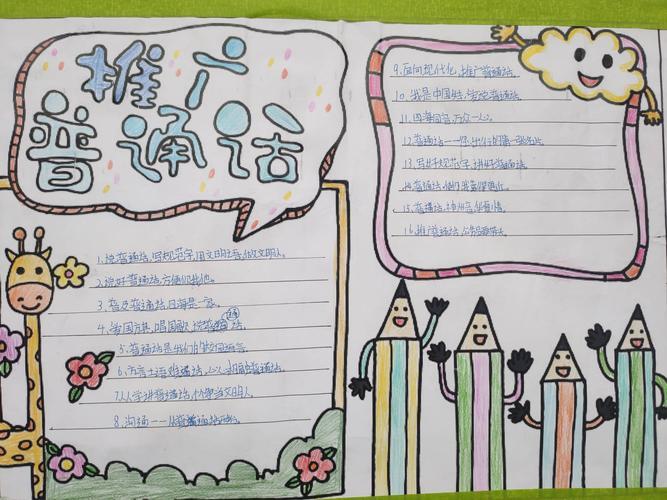 推广
普通话
1.说普通话,写规范字,用文明语,做文明人。
2.说好普通话,方便你我他。
3.普及普通话,四海是一家。
4.爱国旗,唱国歌,说普通话。
5.普通话是我们的校园语言。
6.方言土语难通话,心心相印普通话。
7.人人学讲普通话,个个争当文明人。
8.沟通——从普通话开始。
9.面向现代化,推广普通话。
10.我是中国娃,爱说普通话。
11.四海同音,万众一心。
12.普通话——你
13.写好规范字,讲好普通话。
14.普通话,使你我
15.普通话,神州音,华夏情。
16.推广普通话